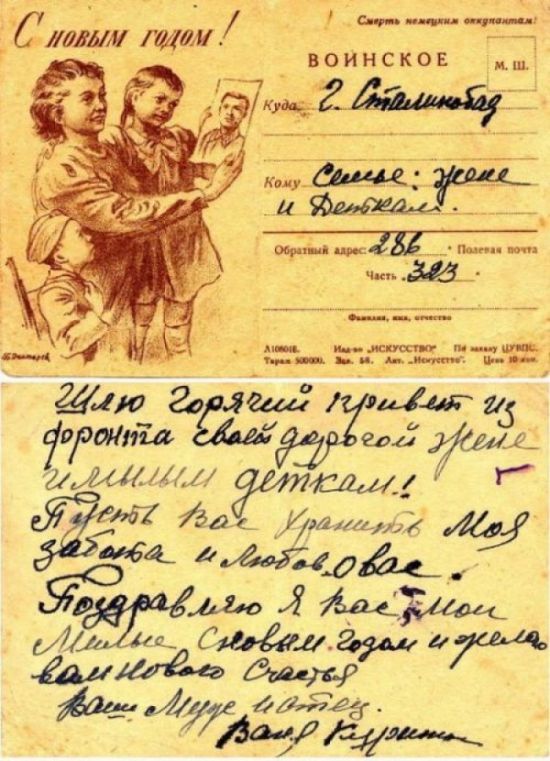 С новым годом!
Смерть немецким оккупантам!
ВОИНСКОЕ
М. Ш.
Куда г. Сталинобад
Кому семье: жене
и Деткам.
Обратный адрес: 286 Полевая почта
Часть 323
Фамилия, имя, отчество
А108018. Изд-во „ИСКУССТВО" По заказу ЦУВПС.
Тираж 500000. Зак. 58. Лит. „Искусство". Цена 10 коп.
Шлю горячий привет из
фронта своей дорогой жене
и милым деткам!
Пусть Вас хранить Моя
забота и любов о вас.
Поздравляю я Вас мои
Милые с новым годом и желаю
вам нового счастья
Ваш Муж и отец.
Ваня